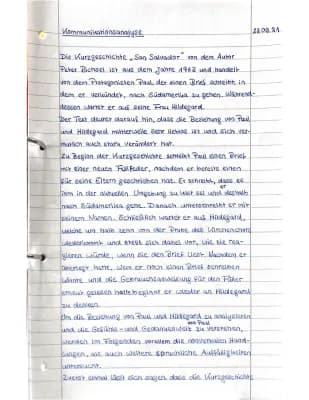 Kommunikationsanalyse 22.09.21
Die Kurzgeschichte "San Salvador" von dem Autor
Peter Bichsel ist aus dem Jahre 1962 und handelt
von dem Protagonisten Paul, der einen Brief schreibt, in
dem er verkündet, nach Südamerika zu gehen. Während-
dessen wartet er auf seine Frau Hildegard.
Der Text deutet darauf hin, dass die Beziehung von Paul
und Hildegard mittlerweile eher lieblos ist und sich ver-
mutlich auch stark verändert hat.
Zu Beginn der Kurzgeschichte schreibt Paul einen Brief
mit einer neuen Füllfeder, nachdem er bereits einen
für seine Eltern geschrieben hat. Er schreibt, dass es
ihm in der aktuellen Umgebung zu kalt sei und er deshalb
nach Südamerika gehe. Danach unterschreibt er mit
seinem Namen. Schließlich wartet er auf Hildegard,
welche um halb zehn von der Probe des Kirchenchors
wiederkommt und stellt sich dabei vor, wie sie rea-
gieren würde, wenn sie den Brief liest. Nachdem er
überlegt hatte, wem er noch einen Brief schreiben
könnte und die Gebrauchsanweisung für den Füller
erneut gelesen hatte, beginnt er wieder an Hildegard
zu denken.
Um die Beziehung von Paul und Hildegard zu analysieren
und die Gefühls- und Gedankenwelt von Paul zu verstehen,
werden im Folgenden vorallem die nonverbalen Hand-
lungen, wie auch weitere sprachliche Auffälligkeiten
untersucht.
Zuerst einmal lässt sich sagen, dass die Kurzgeschichte